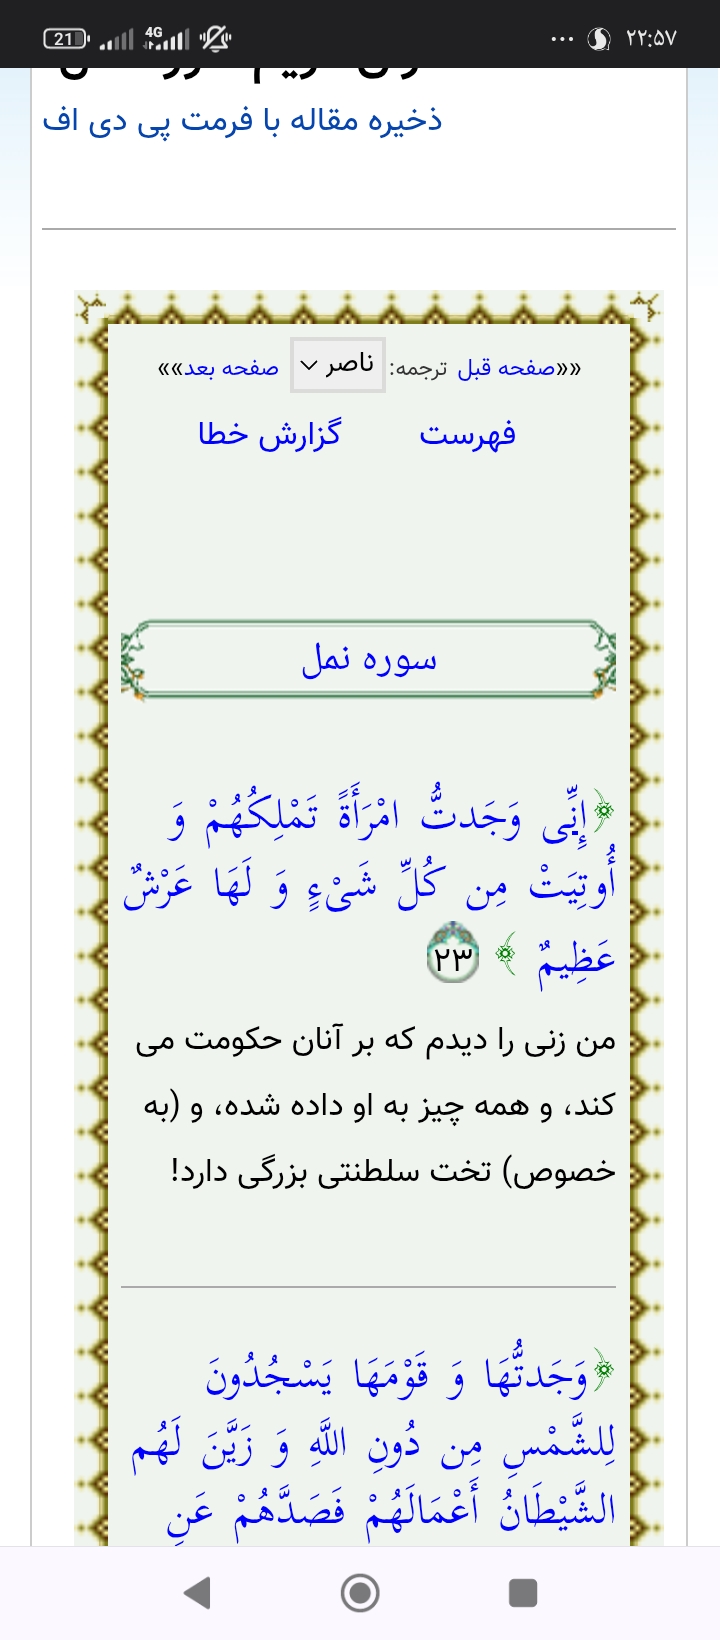 21 4G ۲۲:۵۷
ذخیره مقاله با فرمت پی دی اف
««صفحه قبل ترجمه: ناصر صفحه بعد»»
فهرست گزارش خطا
سوره نمل
﴿إِنِّی وَجَدتُّ امْرَأَةً تَمْلِكُهُمْ وَ
أُوتِیَتْ مِن كُلِّ شَیْءٍ وَ لَهَا عَرْشٌ
عَظِیمٌ ﴾ ۲۳
من زنی را دیدم که بر آنان حکومت می
کند، و همه چیز به او داده شده، و (به
خصوص) تخت سلطنتی بزرگی دارد!
﴿وَجَدتُّهَا وَ قَوْمَهَا یَسْجُدُونَ
لِلشَّمْسِ مِن دُونِ اللَّهِ وَ زَیَّنَ لَهُم
الشَّیْطَانُ أَعْمَالَهُمْ فَصَدَّهُمْ عَنِ